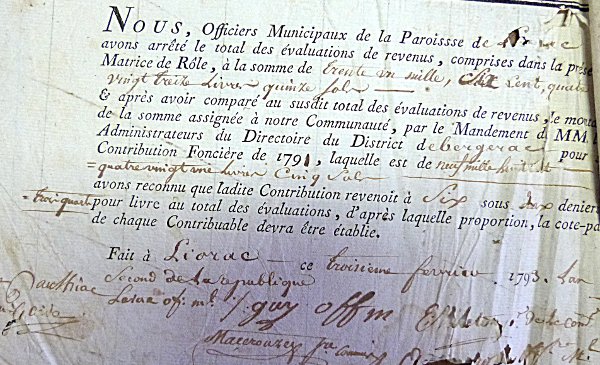 NOUS, Officiers Municipaux de la Paroissse de Liorac
avons arrêté le total des évaluations de revenus, comprises dans la prése
Matrice de Rôle, à la somme de trente un mille, six cent, quatre
vingt treize Livres quinze sols
& après avoir comparé au susdit total des évaluations de revenus, le monta
de la somme assignée à notre Communauté, par le Mandement d MM. l
Administrateurs du Directoire du District de bergerac pour
Contribution Foncière de 1791, laquelle est de neuf mille huit cent
quatre vingt une livres Cinq Sols
avons reconnu que ladite Contribution revenoit à Six sous deux deniers
trois quarts pour livre au total des évaluations, d'après laquelle proportion, la cote-pa
de chaque Contribuable devra être établie.
Fait à Liorac ce troisieme fevrier 1793 Lan
Second de la republique
guy off m